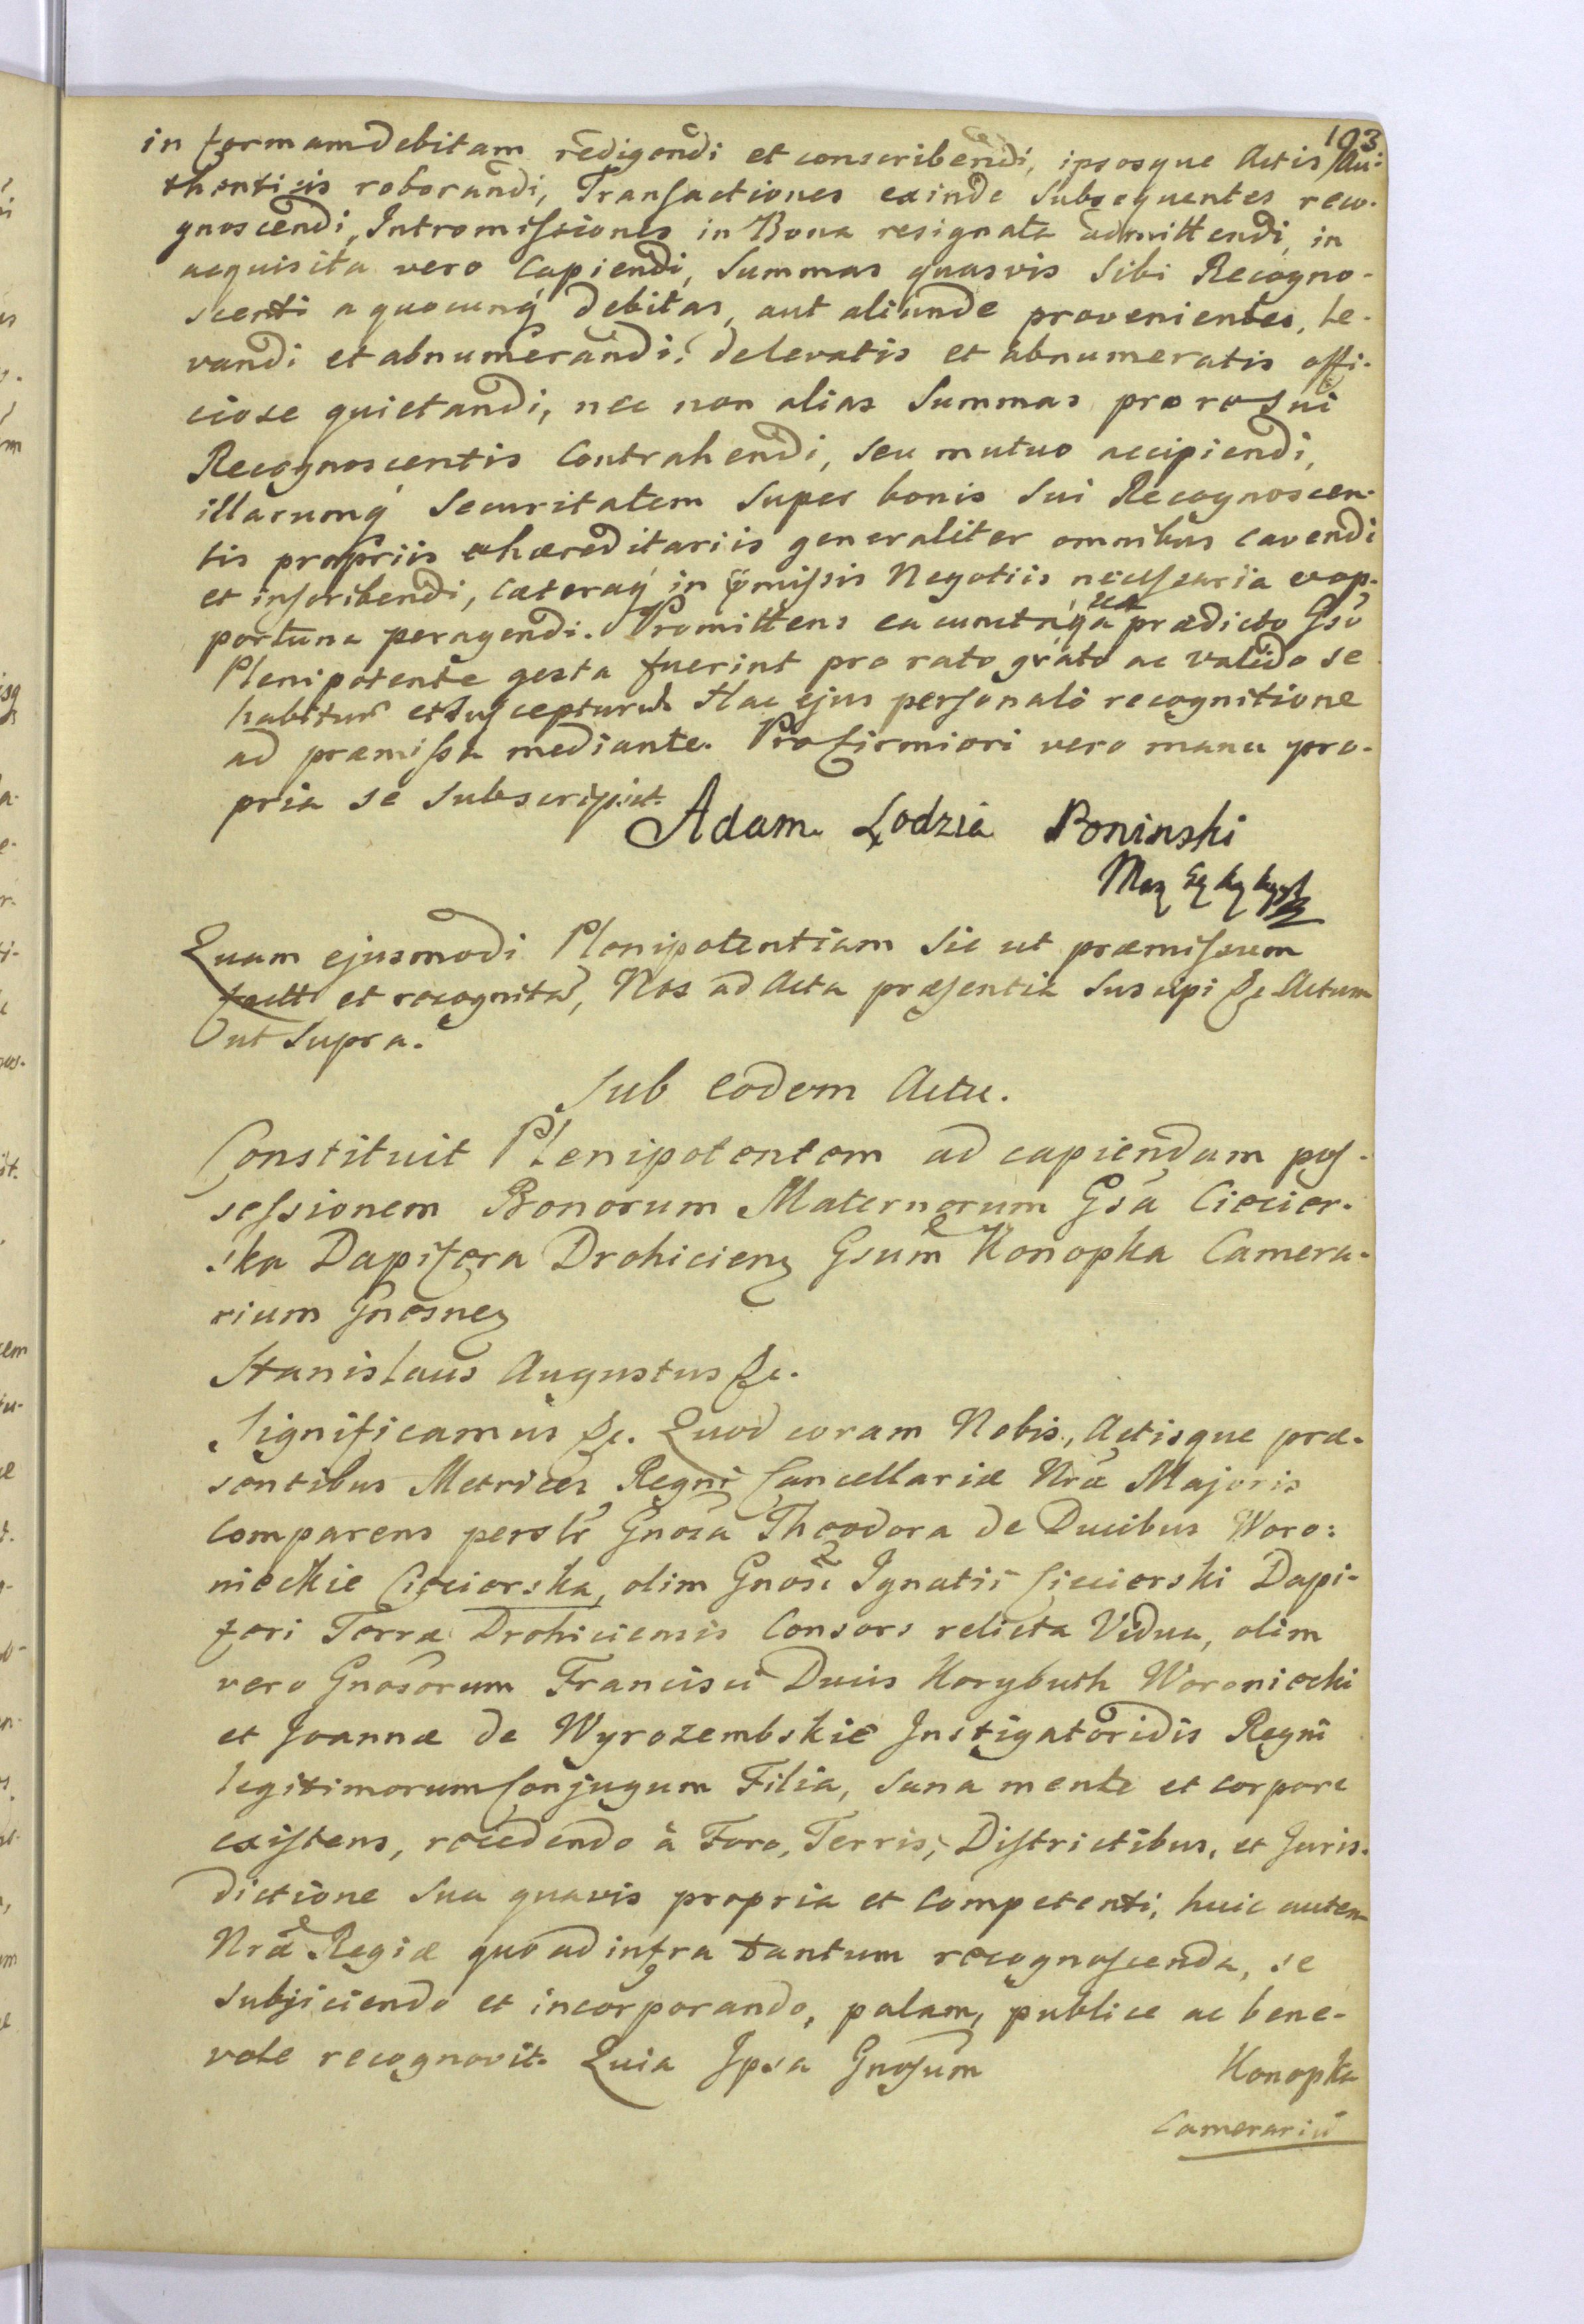 103
in formam debitam redigendi et conscribendi, ipsosque Actis Au:
thenticis roborandi, Transactiones exinde Subsequentes reco-
gnoscendi, Intromissiones in Bona resignata admittendi, in
acquisita vero Capiendi, Summas quasvis Sibi Recogno-
scenti a quocunq́ debitas, aut aliunde provenientes, le-
vandi et abnumerandi, de levatis et abnumeratis offi-
ciose quietandi, nec non alias Summas pro re Sui
Recognoscentis Contrahendi, seu mutuo accipiendi,
illarumq́ Securitatem Super bonis Sui Recognoscen-
tis propriis hæreditariis generaliter omnibus cavendi
et inscribendi, cæteraq́ in p̃missis Negotiis necessaria et op-
portuna peragendi. Promittens ea cuncta quæ a prædicto Gso
Plenipotente gesta fuerint pro rato grato ac valido se
habitur et Suscepturum Hac ejus personali recognitione
ad præmissa mediante. Pro firmiori vero manu pro-
pria se Subscripsit.
Adam Lodzia Poninski
Quam ejusmodi Plenipotentiam Sic ut præmissum
et recognita, Nos ad Acta præsentia Suscepi &c Actum
ut Supra.
Sub eodem Actu.
Constituit Plenipotentem ad capiendam pos-
sessionem Bonorum Maternorum Gsa Ciecier-
ska Dapifera Drohiciens Gsum Konopka Camera-
rium Gnesnes
Stanislaus Augustus &c.
Significamus &c. Quod coram Nobis, Actisque præ-
sentibus Metrices Regni Cancellariæ Nræ Majoris
Comparens persolr Gnosa Theodora de Ducibus Woro:
nieckie Ciecierska, olim Gnosi Ignatii Ciecierski Dapi-
feri Terræ Drohiciensis Consors relicta Vidua, olim
vero Gnosorum Francisci Ducis Korybuth Woroniecki
et Joannæ de Wyrozembskie Instigatoridis Regni
legitimorum Conjugum Filia, Sana mente et corpore
existens, recedendo à Foro, Terris, Districtibus, et Juris-
dictione Sua quavis propria et Competenti, huic autem
Nræ Regiæ quo ad infra tantum recognoscenda, se
Subjiciendo et incorporando, palam, publice ac bene-
vole recognovit. Quia Ipsa Gnosum Konopka
Camerariũ